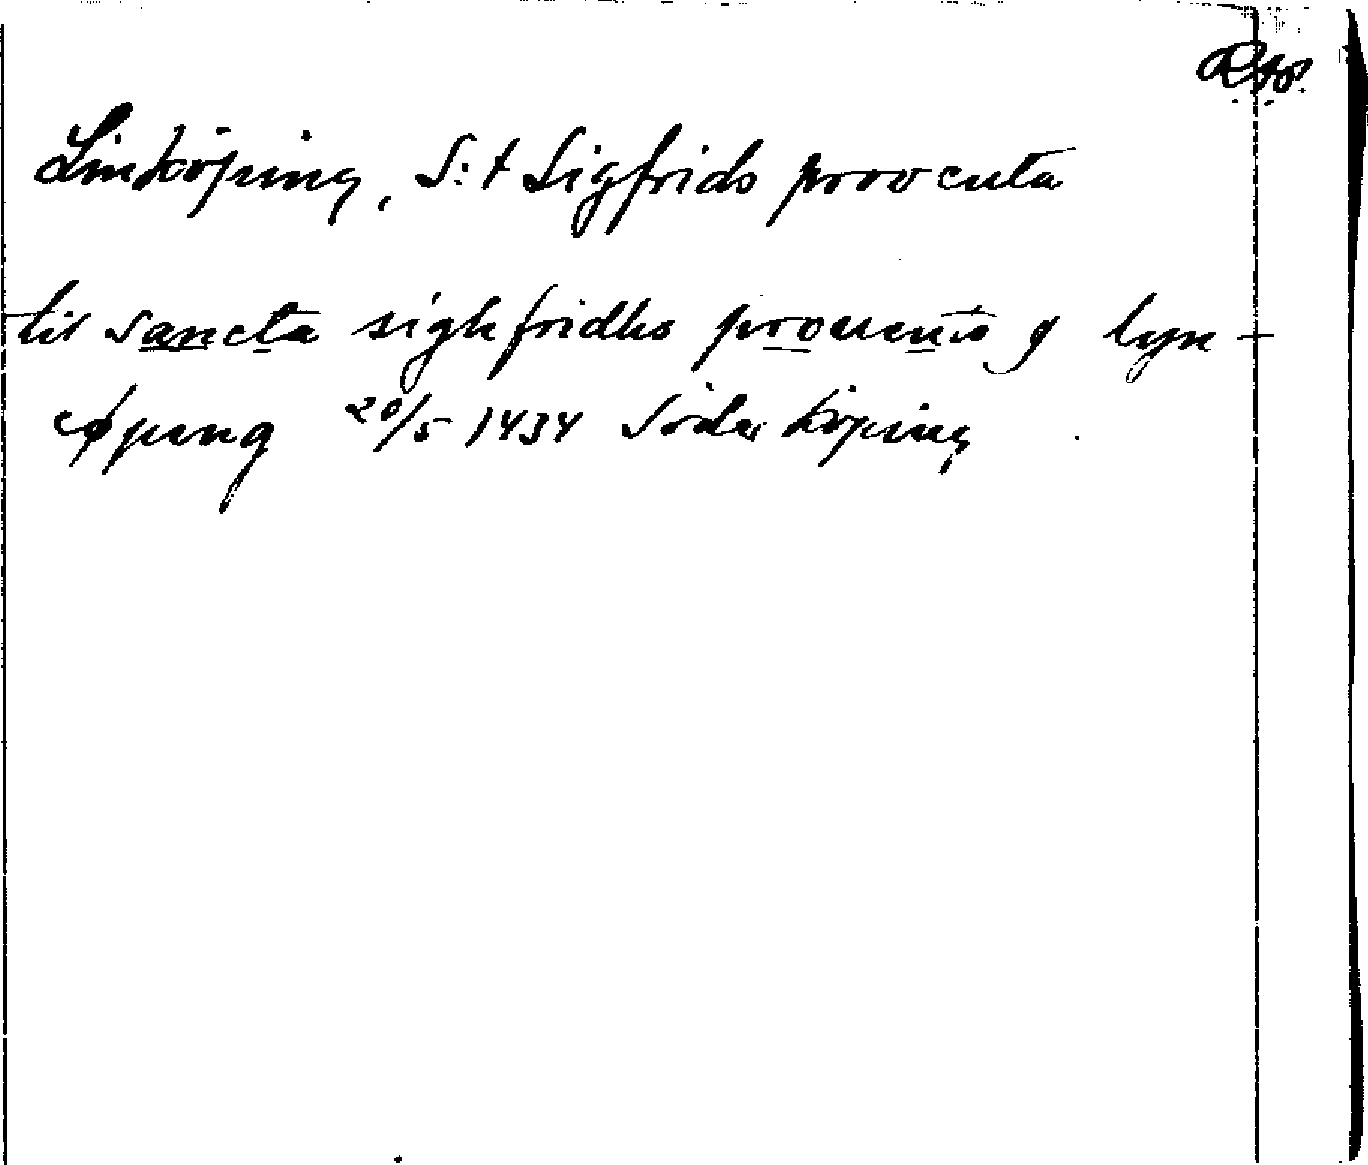 Linköping, S:t Sigfrids proventa
til sancta sighfridhs prouento j lyn-
cøpung 20/5 1434 Söderköping